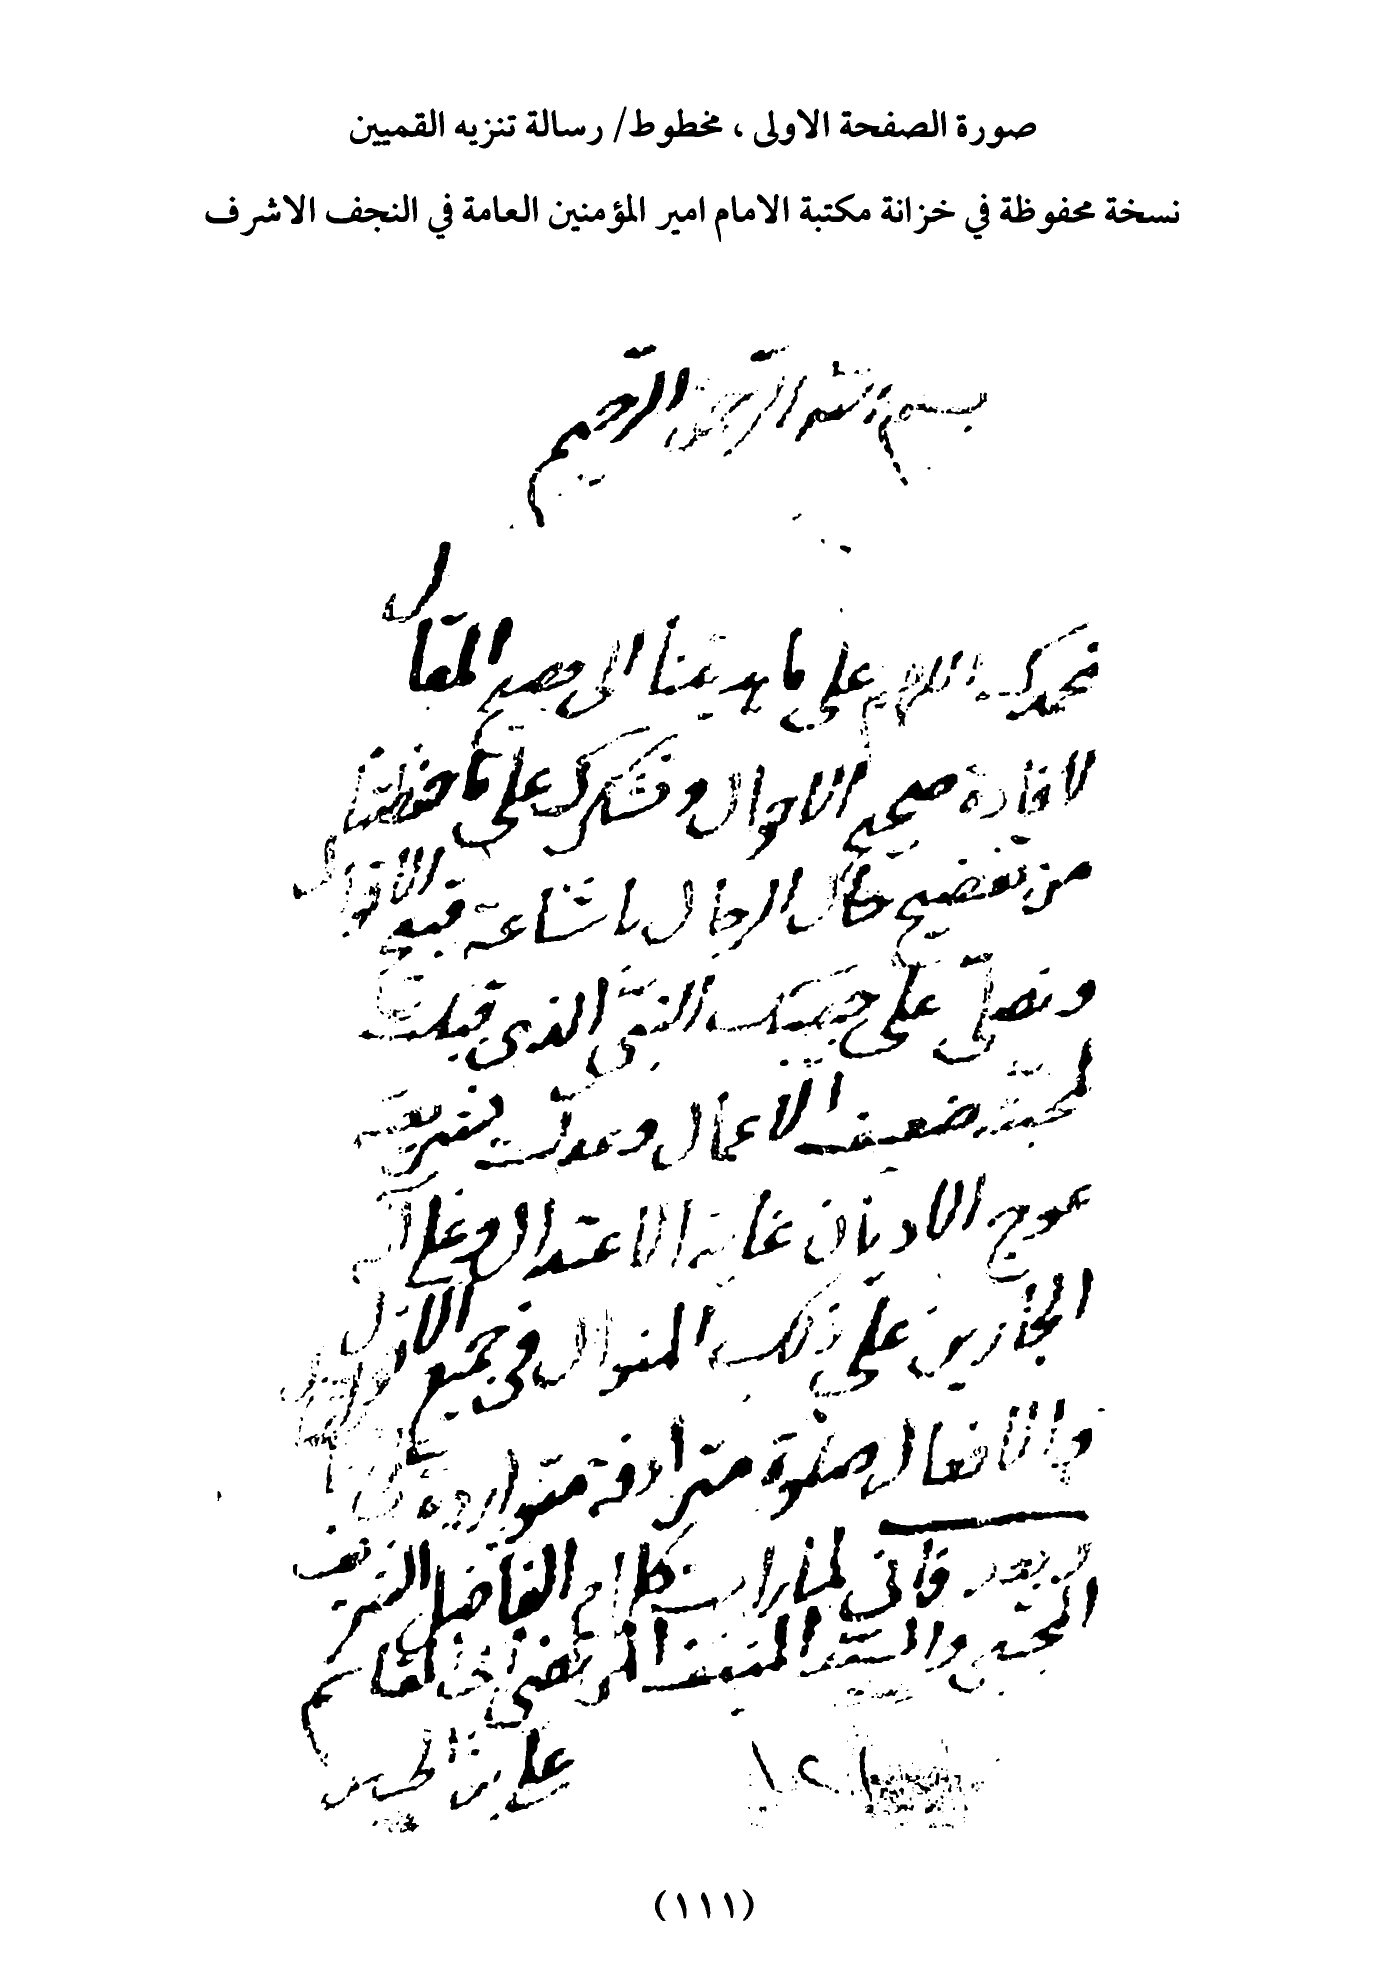 صورة الصفحة الاولى ، مخطوط/ رسالة تنزيه القميين
نسخة محفوظة في خزانة مكتبة الامام امير المؤمنين العامة في النجف الاشرف
بسم الله الرحمن الرحيم
نحمدك اللهم على ما هديتنا الى فصيح المقال
لافادة صحيح الاحوال ونشكرك على ما حفظتنا
من تفضيح حال الرجال باشاعة قبيح الاقوال
ونصلي على حبيبك النبي الذي قبلت
لمحبته ضعيف الاعمال وعدلت بشريعته
عوج الاديان غاية الاعتدال وعلى آله
الجارين على ذلك المنوال في جميع الاقوال
والافعال صلوة مترادفة متواردة
وبعد فاني لما رايت كلام الفاضل الشريف
المجتبى والسيد المنيف المرتضى ابي القاسم
علي بن الحسين
(١١١)